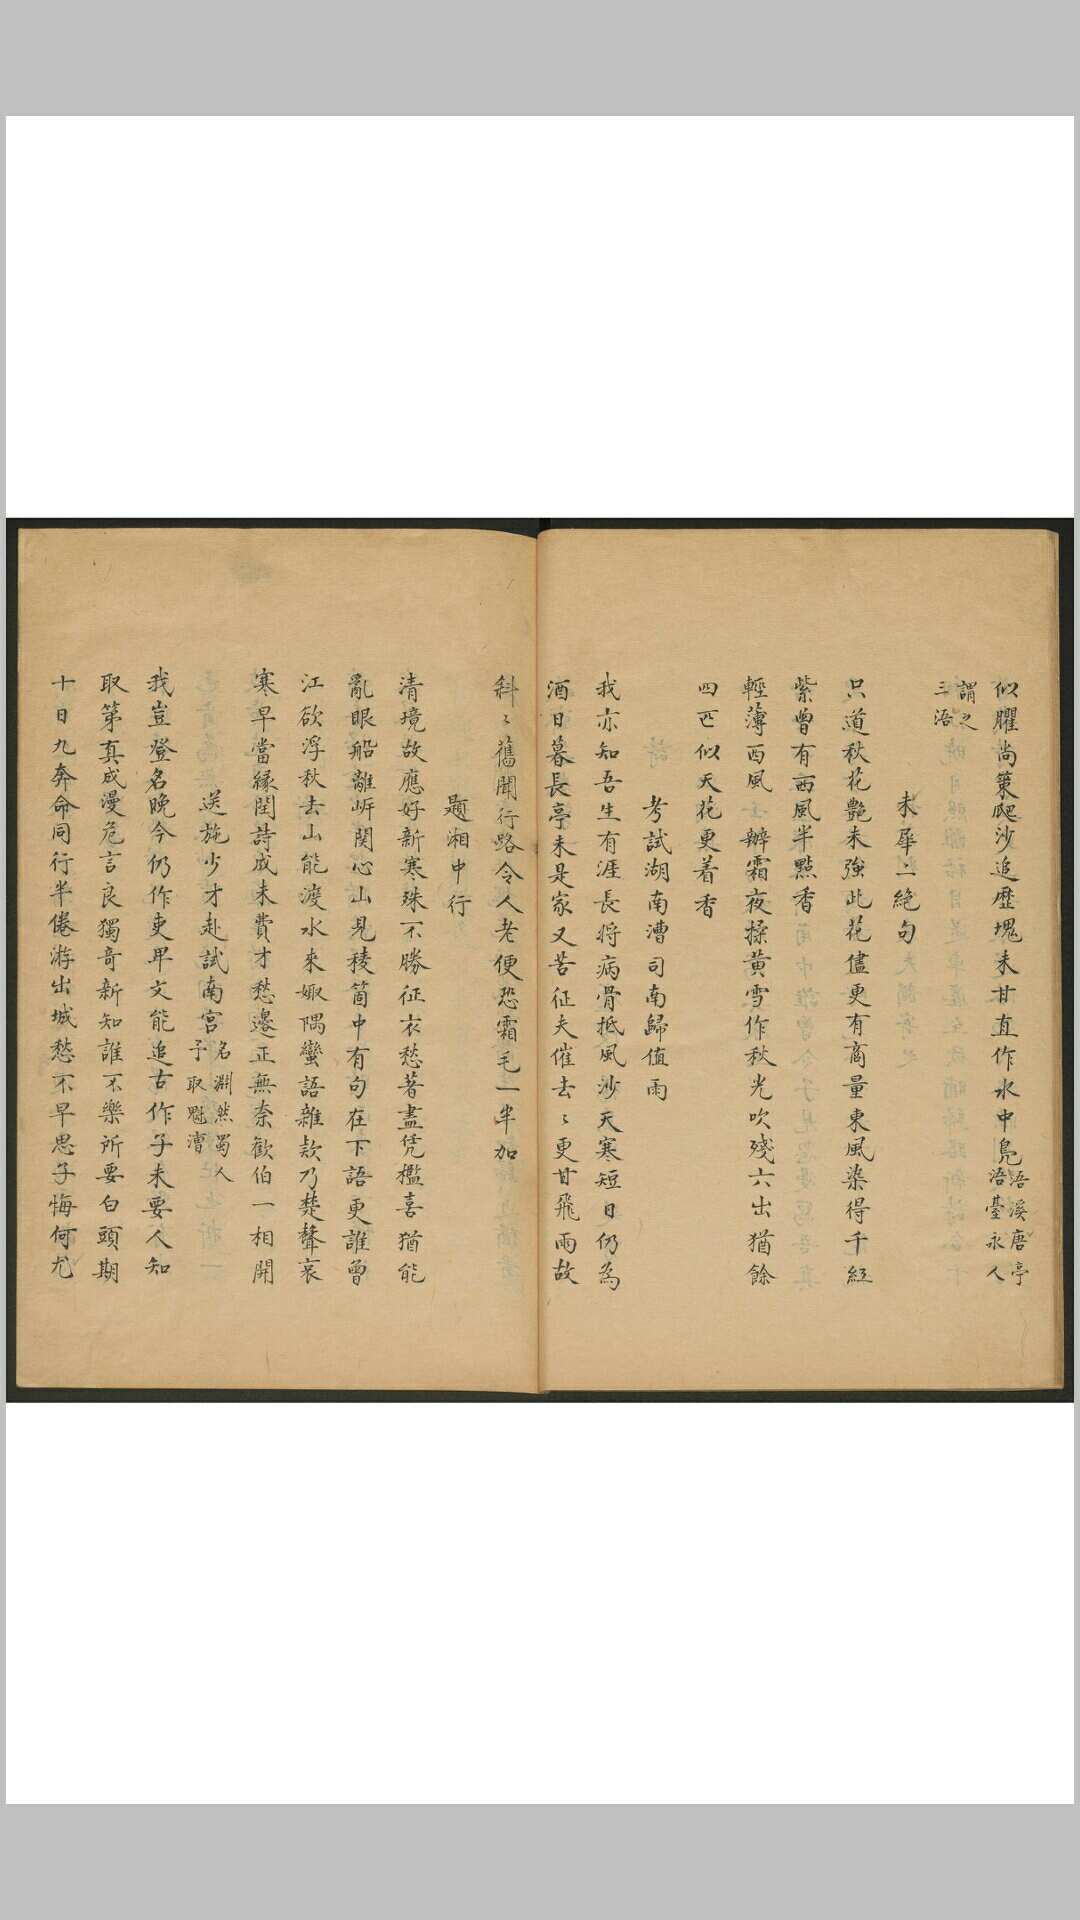 似臞尚策爬沙追歴塊未甘直作水中鳧浯溪唐亭
浯臺永人
謂之
三浯
木犀二絶句
只道秋花艶未強此花儘更有商量東風染得千紅
紫曽有西風半㸃香
輕薄西風未辦霜夜揉黄雪作秋光吹殘六出猶餘
四匹似天花更着香
考試湖南漕司南歸值雨
我亦知吾生有涯長将病骨抵風沙天寒短日仍為
酒日暮長亭未是家又苦征夫催去〻更甘飛雨故
斜〻舊聞行路令人老便恐霜毛一半加
題湘中行
清境故應好新寒殊不勝征衣愁著盡凭檻喜猶能
亂眼船離岍関心山見稜箇中有句在下語更誰曽
江欲浮秋去山能渡水來娵隅蠻語雜欵乃楚聲哀
寒早當縁閏詩成未費才愁邊正無奈歡伯一相開
送施少才赴試南宮名淵然蜀人
予取魁漕
我豈登名晚今仍作吏卑文能追古作子未要人知
取第真成漫危言良獨奇新知誰不樂所要白頭期
十日九奔命同行半倦游出城愁不早思子悔何尤